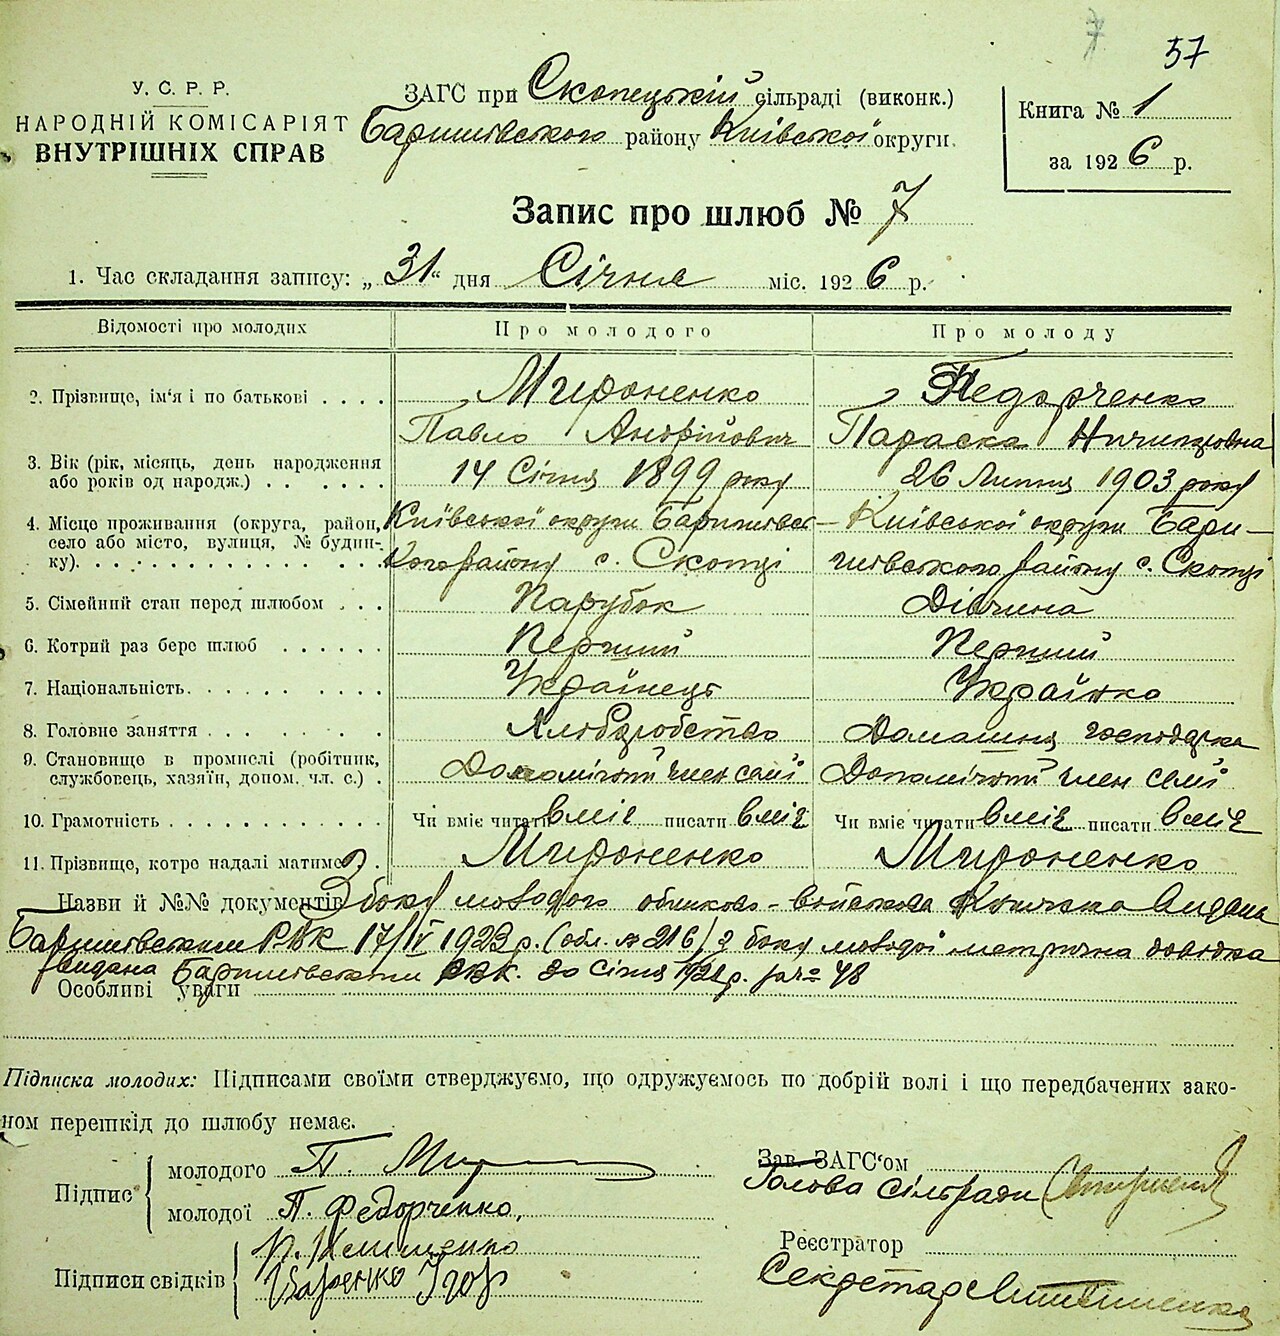 57
У. С. Р. Р.
НАРОДНІЙ КОМІСАРІЯТ
ВНУТРІШНІХ СПРАВ
ЗАГС при Скопецькій сільраді (виконк.)
Баришівського району Київської округи.
Книга № 1
за 1926 р.
Запис про шлюб № 7
1. Час складання запису: „31“ дня Січня міс. 1926 р.
Відомості про молодих Про молодого Про молоду
2. Прізвище, ім'я і по батькові . . . . Мироненко Федорченко
Павло Анофрійович Параска Ничипорівна
3. Вік (рік, місяць, день народження або років од народж.) . . . . . 14 Січня 1899 року 26 Липня 1903 року
4. Місце проживання (округа, район, село або місто, вулиця, № будинку). Київської округи Баришівського району с. Скопці Київської округи Баришівського району с. Скопці
5. Сімейний стан перед шлюбом . . . Парубок Дівчина
6. Котрий раз бере шлюб . . . . . . Перший Перший
7. Національність. . . . . . . . . . Українець Українка
8. Головне заняття . . . . . . . . Хліборобство Домашня господарка
9. Становище в промислі (робітник, службовець, хазяїн, допом. чл. с.) . Допомічний член сімї Допомічний член сімї
10. Грамотність . . . . . . . . . . . Чи вміє читати вміє писати вміє Чи вміє читати вміє писати вміє
11. Прізвище, котре надалі матиме . . Мироненко Мироненко
Назви й №№ документів З боку молодого обліково-військова Книжка видана
Баришівським РВК 17/IV 1923 р. (обл. № 216) З боку молодої метрична довідка
видана Баришівським РВК. 20 Січня р. за № 48
Особливі уваги
Підписка молодих: Підписами своїми стверджуємо, що одружуємось по добрій волі і що передбачених зако-
ном перешкід до шлюбу немає.
Підпис
молодого П. Мир
молодої П. Федорченко,
Підписи свідків
Ігор
Зав. ЗАГС'ом
Голова сільради
Реєстратор
Секретар